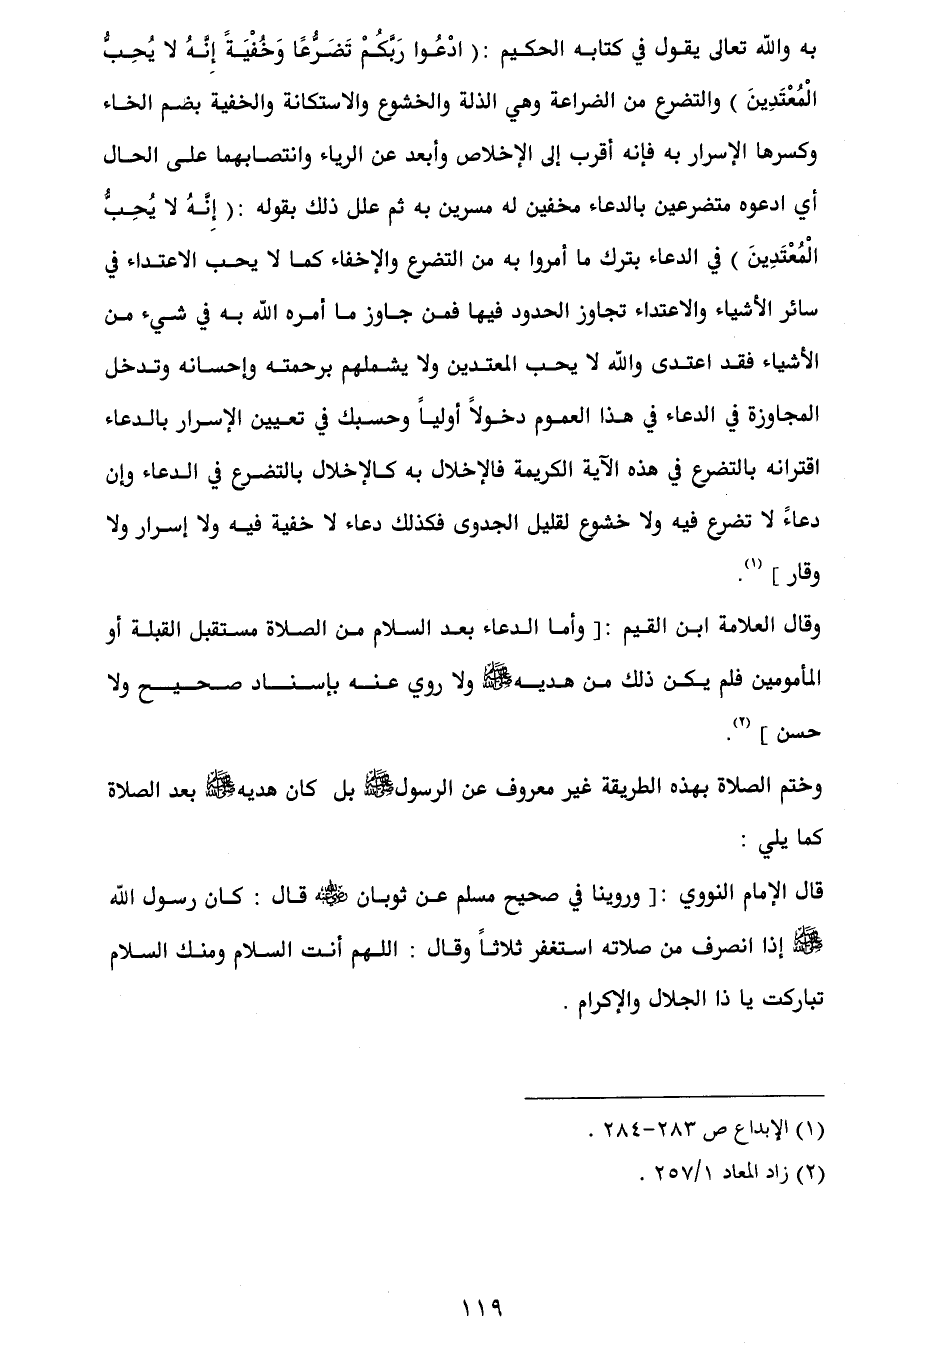 به والله تعالى يقول في كتابه الحكيم :( ادْعُوا رَبَّكُمْ تَضَرُّعًا وَخُفْيَةً إِنَّهُ لا يُحِبُّ
الْمُعْتَدِينَ ) والتضرع من الضراعة وهي الذلة والخشوع والاستكانة والخفية بضم الخاء
وكسرها الإسرار به فإنه أقرب إلى الإخلاص وأبعد عن الرياء وانتصابهما على الحال
أي ادعوه متضرعين بالدعاء مخفين له مسرين به ثم علل ذلك بقوله :( إِنَّهُ لا يُحِبُّ
الْمُعْتَدِينَ ) في الدعاء بترك ما أمروا به من التضرع والإخفاء كما لا يحب الاعتداء في
سائر الأشياء والاعتداء تجاوز الحدود فيها فمن جاوز ما أمره الله به في شيء من
الأشياء فقد اعتدى والله لا يحب المعتدين ولا يشملهم برحمته وإحسانه وتدخل
المجاوزة في الدعاء في هذا العموم دخولاً أولياً وحسبك في تعيين الإسرار بالدعاء
اقترانه بالتضرع في هذه الآية الكريمة فالإخلال به كالإخلال بالتضرع في الدعاء وإن
دعاءً لا تضرع فيه ولا خشوع لقليل الجدوى فكذلك دعاء لا خفية فيه ولا إسرار ولا
وقار ] (١).
وقال العلامة ابن القيم :[ وأما الدعاء بعد السلام من الصلاة مستقبل القبلة أو
المأمومين فلم يكن ذلك من هديه ﷺ ولا روي عنه بإسناد صحيح ولا
حسن ] (٢).
وختم الصلاة بهذه الطريقة غير معروف عن الرسول ﷺ بل كان هديه ﷺ بعد الصلاة
كما يلي :
قال الإمام النووي :[ وروينا في صحيح مسلم عن ثوبان ﷛ قال : كان رسول الله
ﷺ إذا انصرف من صلاته استغفر ثلاثاً وقال : اللهم أنت السلام ومنك السلام
تباركت يا ذا الجلال والإكرام .
(١) الإبداع ص ٢٨٣-٢٨٤ .
(٢) زاد المعاد ٢٥٧/١ .
١١٩